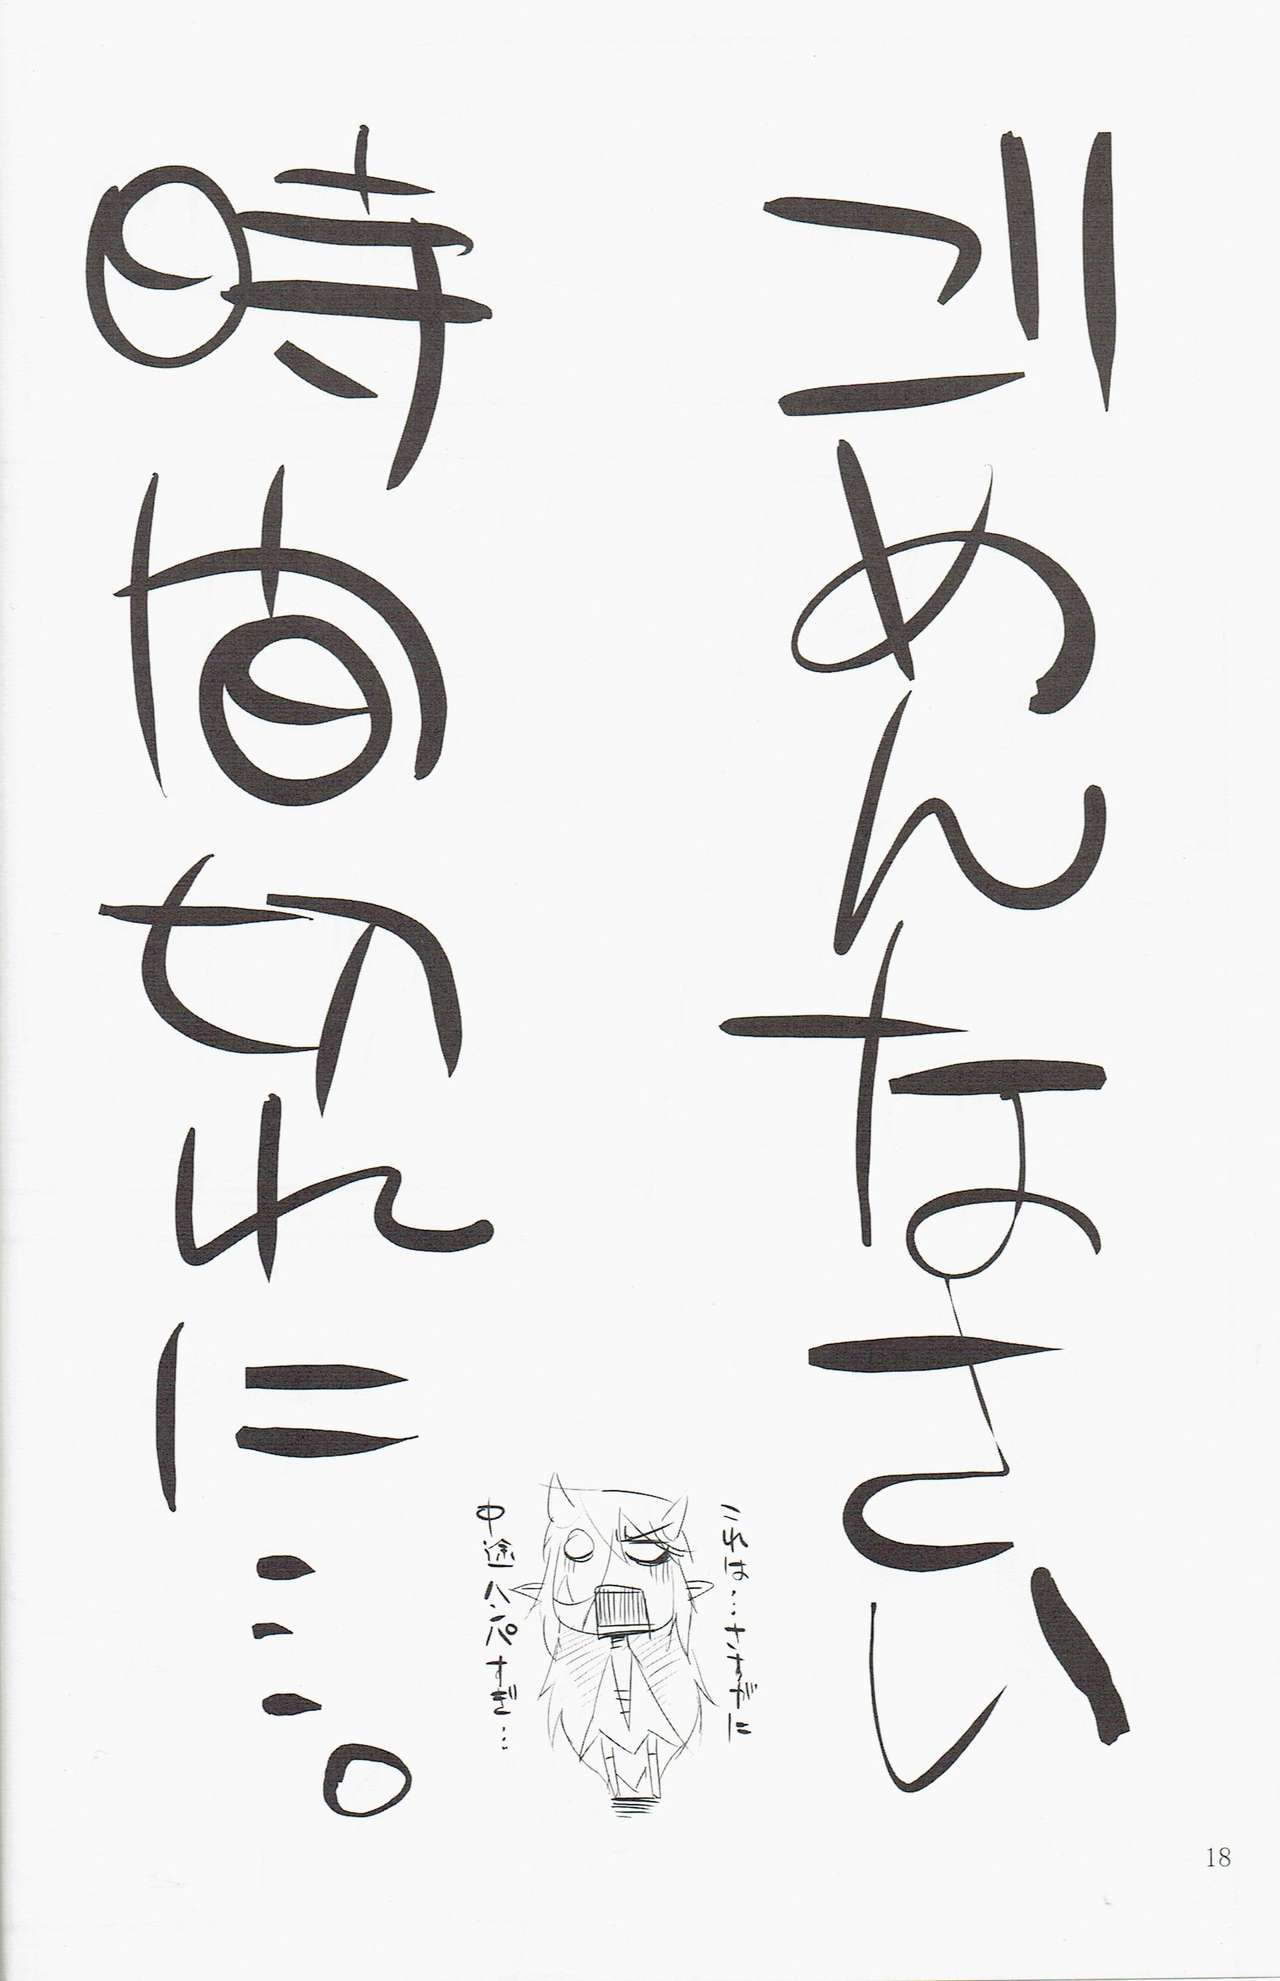 ごめんなさい
時間切れ二…。
これは…さすがに
中途ハンパすぎ…
18